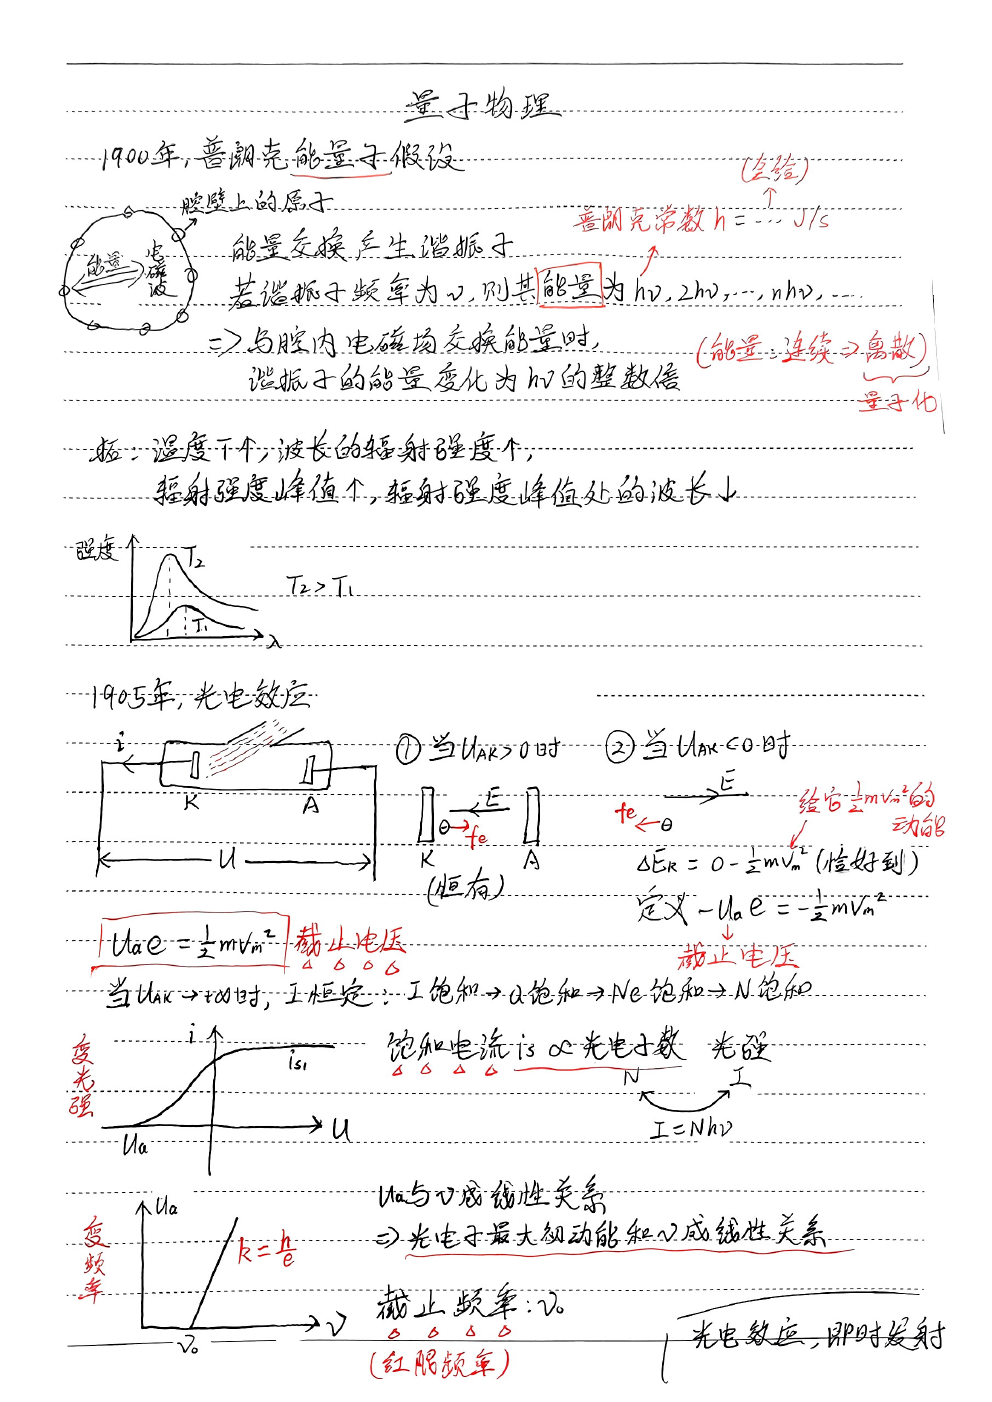 量子物理
1900年,普朗克能量子假设
(会给)
腔壁上的原子
普朗克常数 h = … J/s
能量
电磁波
能量交换产生谐振子
若谐振子频率为ν,则其能量为 hν, 2hν, …, nhν, …
=> 与腔内电磁场交换能量时,
(能量:连续 => 离散)
谐振子的能量变化为hν的整数倍
量子化
:温度T↑,波长的辐射强度↑,
辐射强度峰值↑,辐射强度峰值处的波长↓
强度
T2
T2 > T1
T1
λ
1905年,光电效应
i
K
A
U
① 当UAK>0时
② 当UAK<0时
E
θ
fe
K
A
(恒有)
E
fe
θ
给它½mVm²的
动能
ΔEK = 0 - ½mVm² (恰好到)
定义 -Ua e = -½mVm²
截止电压
Ua e = ½mVm²
截止电压
当UAK→+∞时, I恒定: I饱和→Q饱和→Ne饱和→N饱和
变光强
i
is1
Ua
U
饱和电流 is ∝ 光电子数 光强
N
I
I = Nhν
变频率
Ua
k = h/e
ν0
ν
Ua与ν成线性关系
=> 光电子最大初动能和ν成线性关系
截止频率: ν0
(红限频率)
光电效应,即时发射